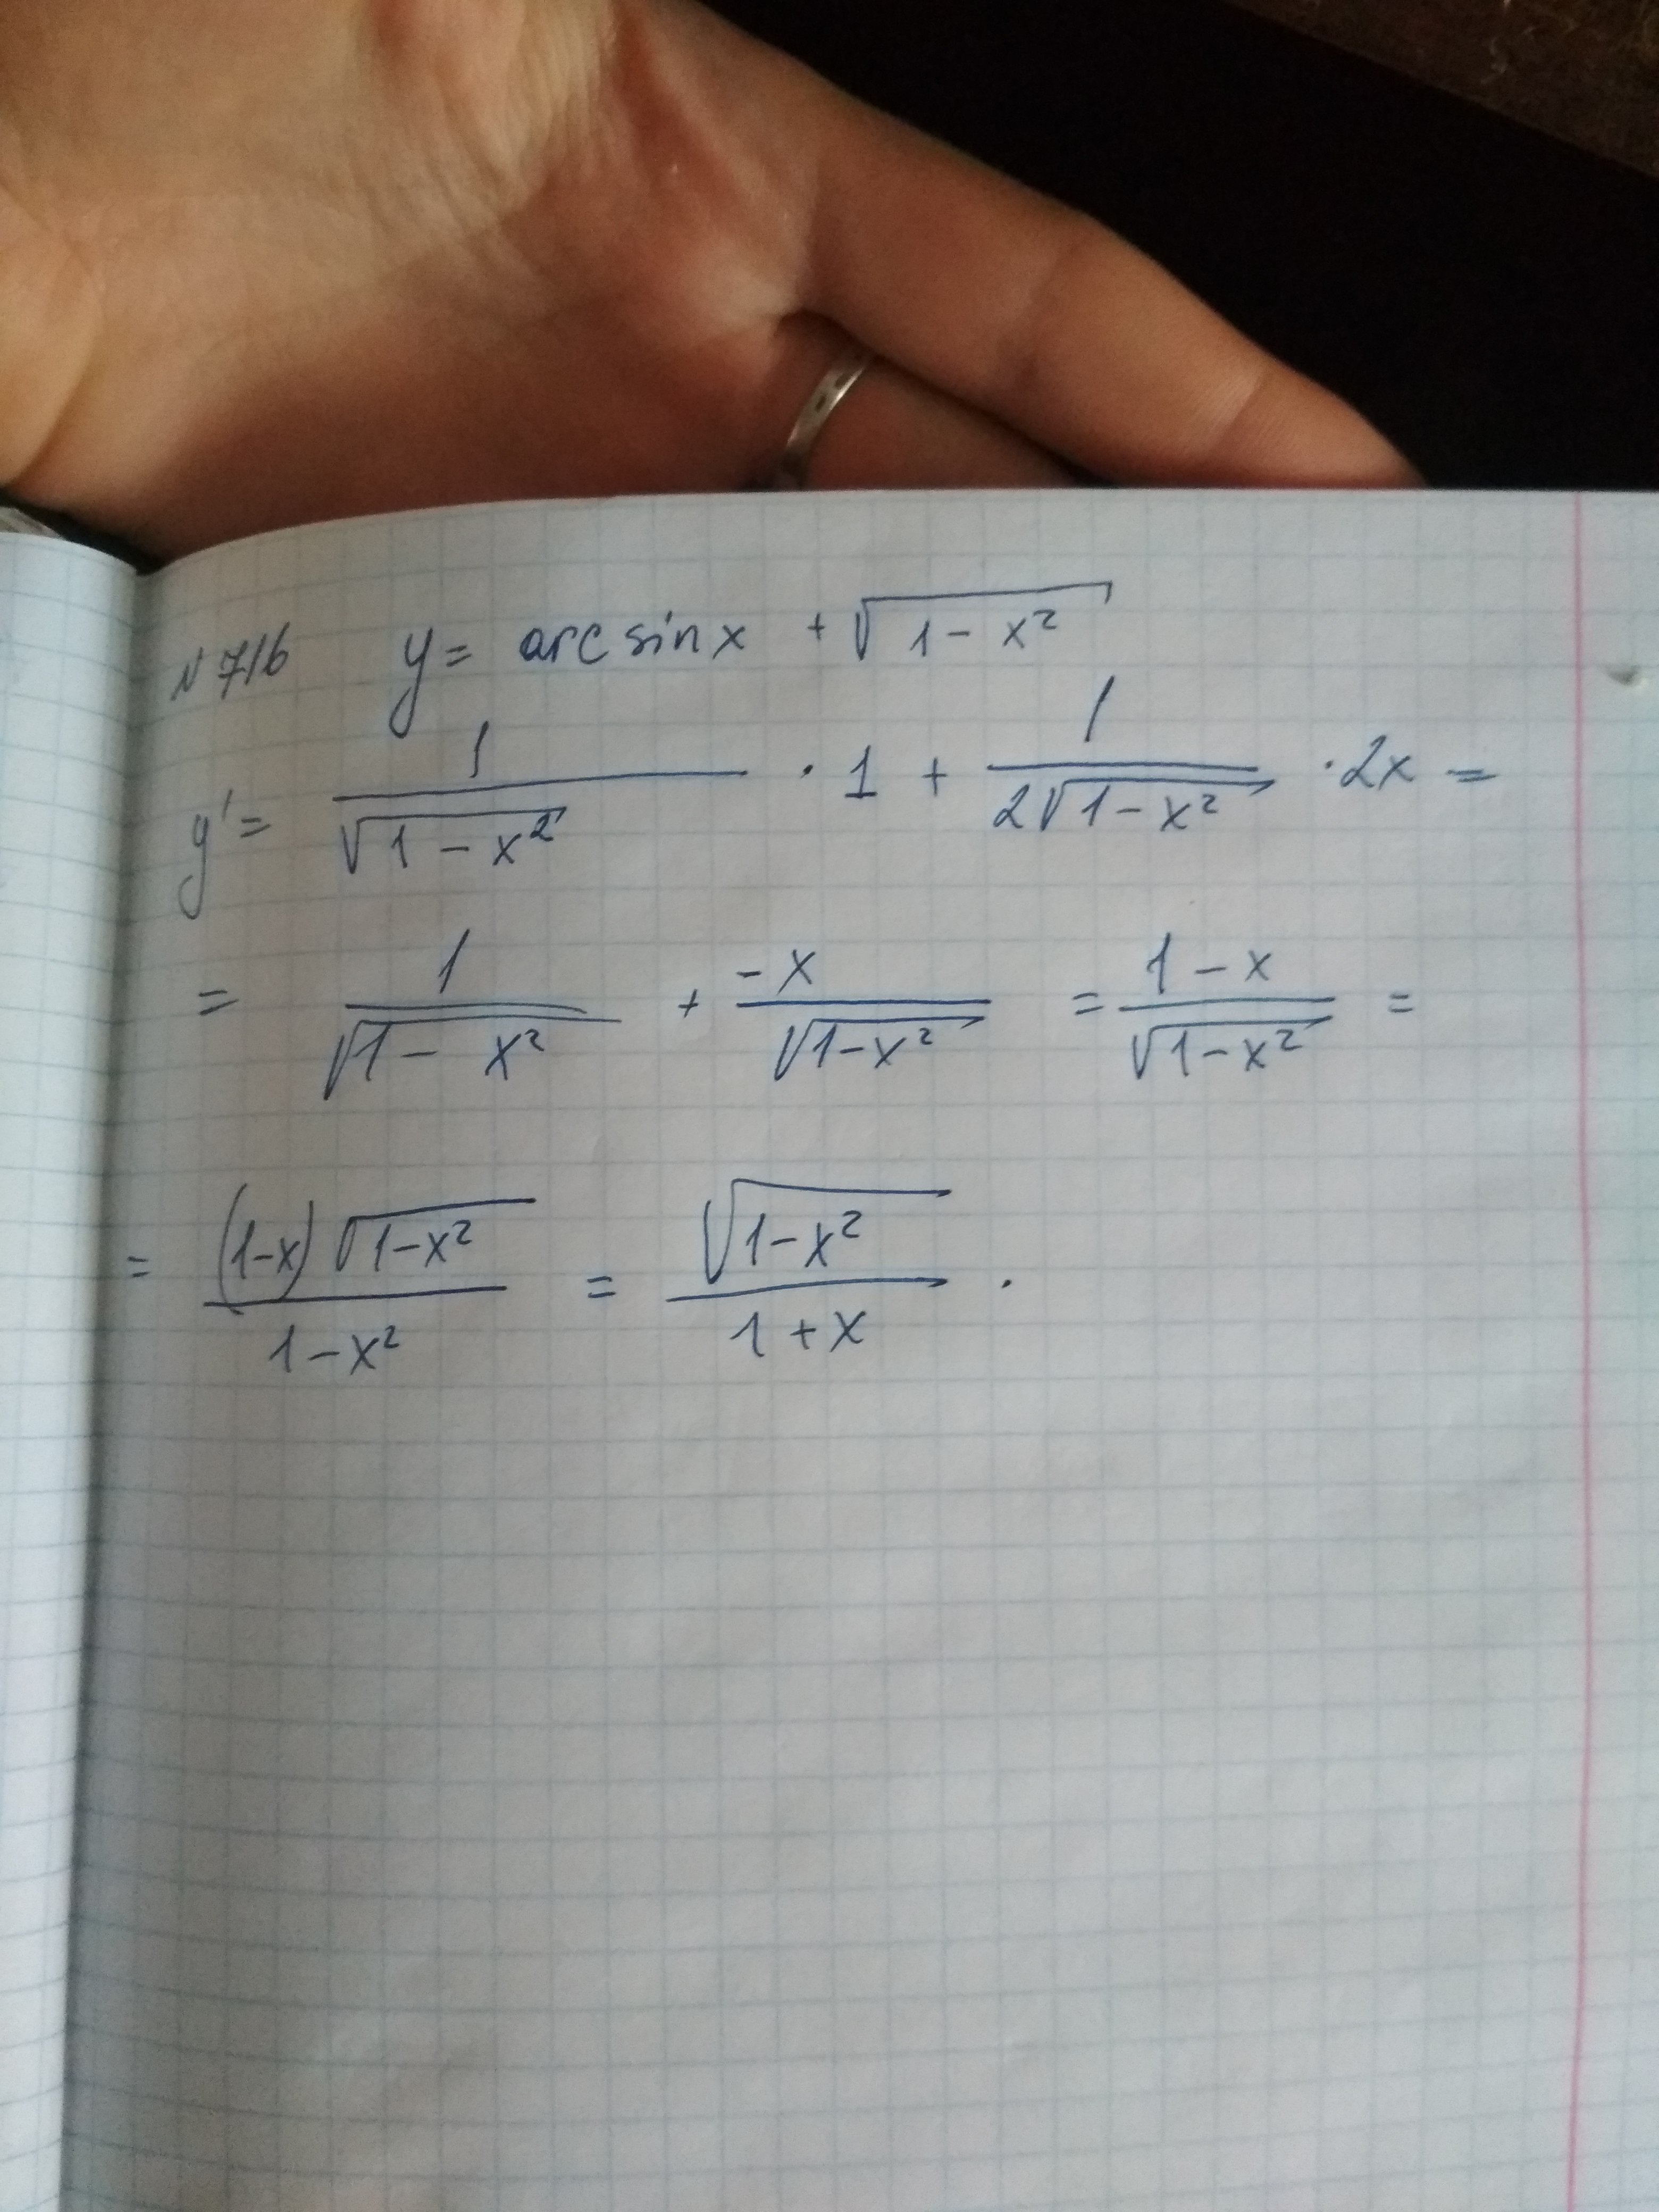 №716 y = arcsinx + √(1 - x²)
y' = 1/√(1 - x²) · 1 + 1/(2√(1 - x²)) · 2x =
= 1/√(1 - x²) + -x/√(1-x²) = (1-x)/√(1-x²) =
= (1-x)√(1-x²)/(1-x²) = √(1-x²)/(1+x) .